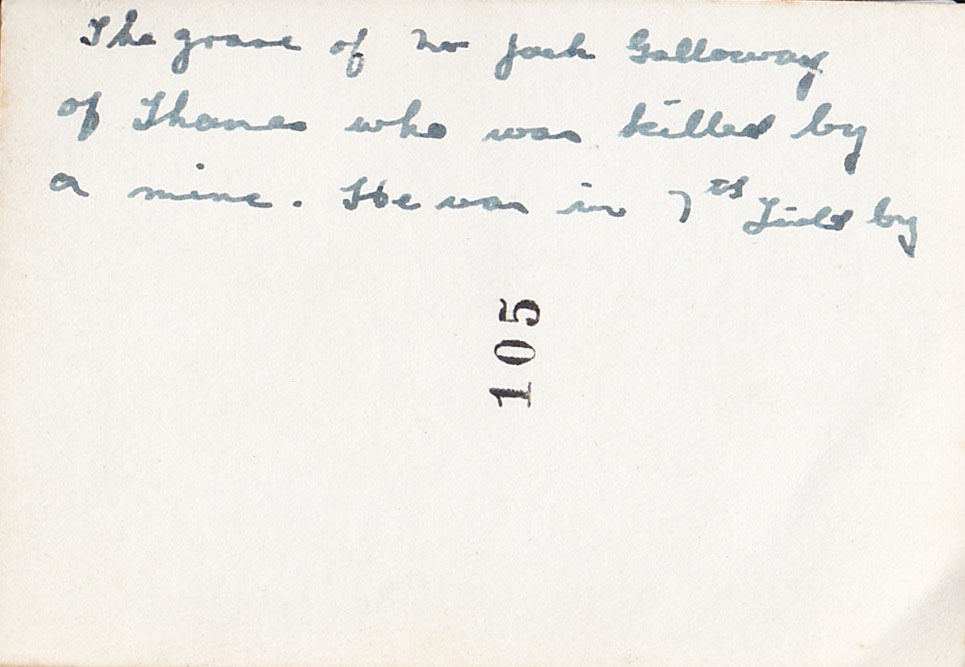 The grave of Jack Galloway
of Thames who was killed by
a mine. He was in 7th Field
105